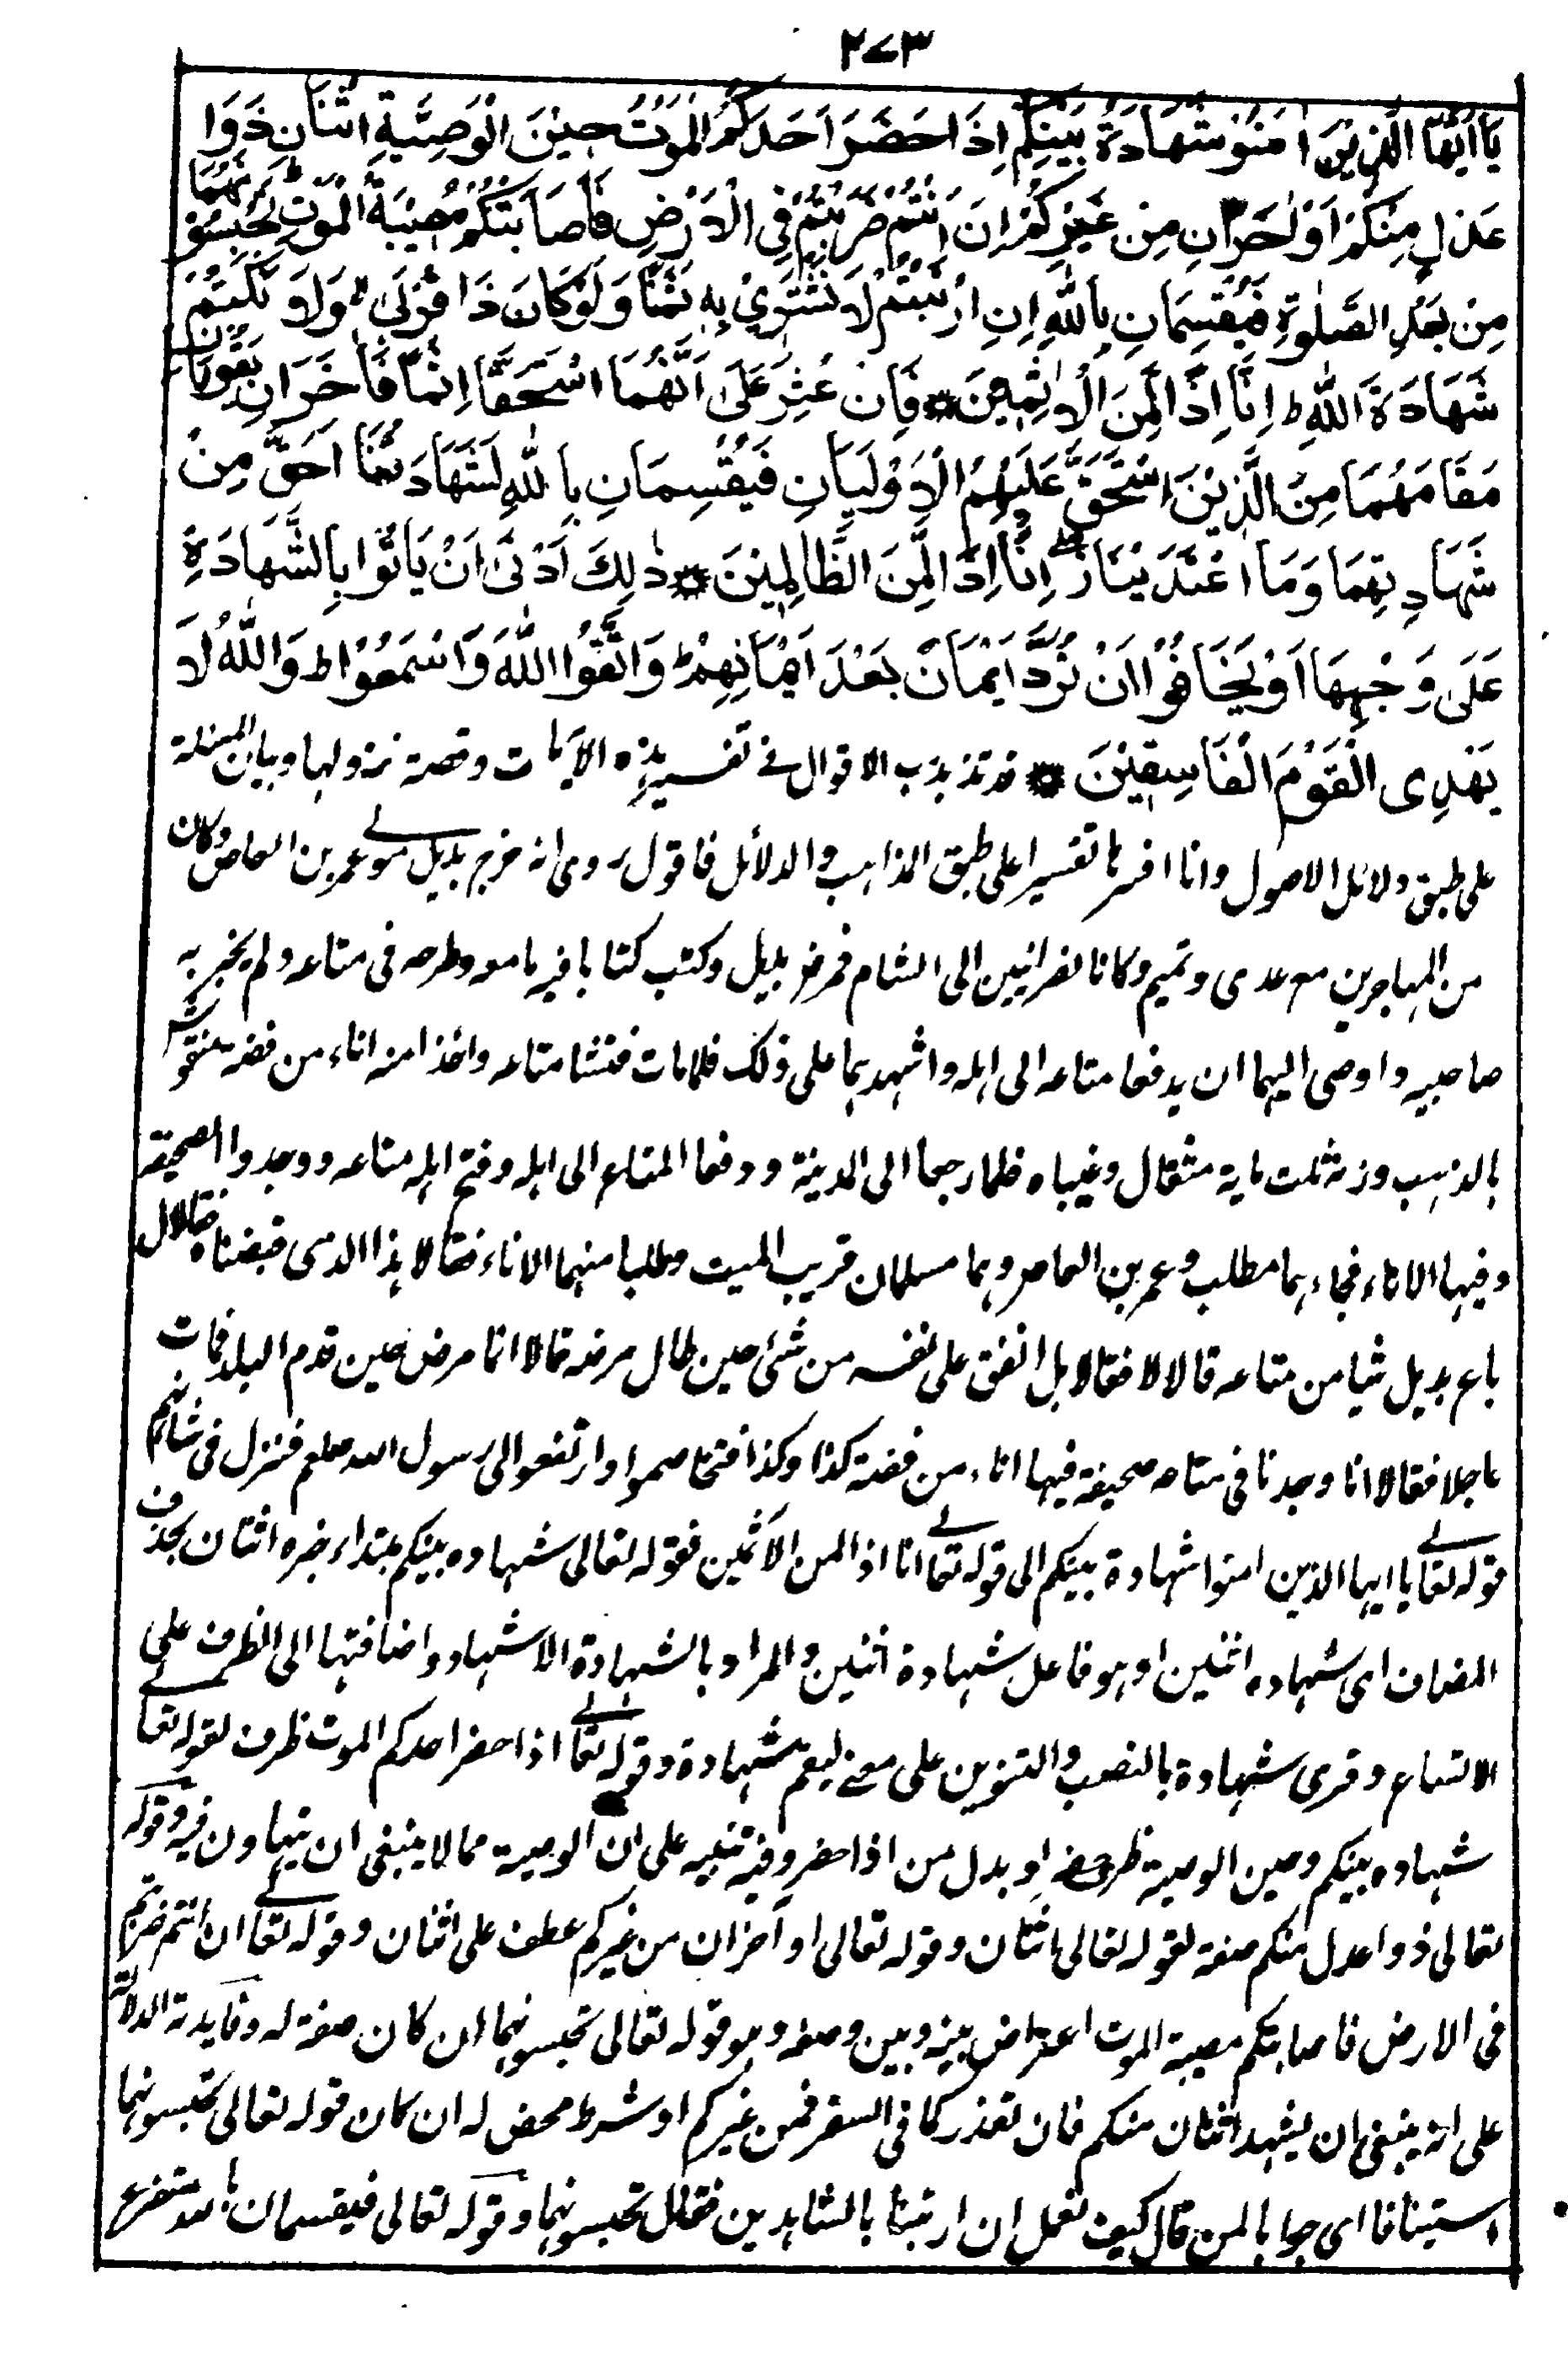 ۲۷۳
يَا أَيُّهَا الَّذِيْنَ اٰمَنُوْا شَهَادَةُ بَيْنِكُمْ اِذَا حَضَرَ اَحَدَكُمُ الْمَوْتُ حِيْنَ الْوَصِيَّةِ اثْنَانِ ذَوَا
عَدْلٍ مِنْكُمْ اَوْ اٰخَرَانِ مِنْ غَيْرِكُمْ اِنْ اَنْتُمْ ضَرَبْتُمْ فِي الْاَرْضِ فَاَصَابَتْكُمْ مُصِيْبَةُ الْمَوْتِ ط تَحْبِسُوْنَهُمَا
مِنْ بَعْدِ الصَّلٰوةِ فَيُقْسِمَانِ بِاللّٰهِ اِنِ ارْتَبْتُمْ لَا نَشْتَرِيْ بِهٖ ثَمَنًا وَلَوْ كَانَ ذَا قُرْبٰى ط وَلَا نَكْتُمُ
شَهَادَةَ اللّٰهِ ط اِنَّا اِذًا لَّمِنَ الْاٰثِمِيْنَ ۞ فَاِنْ عُثِرَ عَلٰى اَنَّهُمَا اسْتَحَقَّا اِثْمًا فَاٰخَرَانِ يَقُوْمَانِ
مَقَامَهُمَا مِنَ الَّذِيْنَ اسْتَحَقَّ عَلَيْهِمُ الْاَوْلَيَانِ فَيُقْسِمَانِ بِاللّٰهِ لَشَهَادَتُنَا اَحَقُّ مِنْ
شَهَادَتِهِمَا وَمَا اعْتَدَيْنَا ز اِنَّا اِذًا لَّمِنَ الظَّالِمِيْنَ ۞ ذٰلِكَ اَدْنٰى اَنْ يَاْتُوْا بِالشَّهَادَةِ
عَلٰى وَجْهِهَا اَوْ يَخَافُوْا اَنْ تُرَدَّ اَيْمَانٌ بَعْدَ اَيْمَانِهِمْ ط وَاتَّقُوا اللّٰهَ وَاسْمَعُوْا ط وَاللّٰهُ لَا
يَهْدِى الْقَوْمَ الْفَاسِقِيْنَ ۞ قد تذبذب الاقوال فے تفسير هذه الآيات وقصة نزولها وبيان المسئلة
على طبق دلائل الاصول وانا افسرها تفسيرا على طبق المذاهب والدلائل فاقول روى انه خرج بديل مولے عمر بن العاص وكان
من المهاجرين مع عدى وتميم وكانا نصرانيين الى الشام فمرض بديل وكتب كتابا فيه ما معه وطرحه فى متاعه ولم يخبر به
صاحبيه واوصى اليهما ان يدفعا متاعه الى اهله واشهدهما على ذلك فلما مات فتشا متاعه واخذا منه اناء من فضة منقوش
بالذهب وزنه ثلث ماية مثقال وغيباه فلما رجعا الى المدينة ودفعا المتاع الى اهله وفتح اهله متاعه ووجدوا الصحيفة
وفيها الاناء فجاءهما مطلب وعمر بن العاص وهما مسلمان قريب الميت وطلبا منهما الاناء فقالا هذا الذى قبضناه فقالا هل
باع بديل شيا من متاعه قالا لا فقالا بل انفق على نفسه من شئ حين طال مرضه قالا انما مرض حين قدم البلد فمات
عاجلا فقالا انا وجدنا فى متاعه صحيفة فيها اناء من فضة كذا وكذا فتخاصموا وارتفعوا الى رسول الله صلعم فنزل فى شانهم
قوله تعالے يا ايها الذين امنوا شهادة بينكم الى قوله تعالے انا اذا لمن الآثمين فقوله تعالى شهادة بينكم مبتداء خبره اثنان بحذف
المضاف اى شهادة اثنين او هو فاعل شهادة اثنين والمراد بالشهادة الاشهاد واضافتها الى الظرف على
الاتساع وقرى شهادة بالنصب والتنوين على معنے ليقم شهادة وقوله تعالے اذا حضر احدكم الموت ظرف لقوله تعالے
شهادة بينكم وحين الوصية ظرف حضر او بدل من اذا حضر وفيه تنبيه على ان الوصية مما لا ينبغى ان يتهاون فيه وقوله
تعالى ذوا عدل منكم صفة لقوله تعالى اثنان وقوله تعالى او آخران من غيركم عطف على اثنان وقوله تعالے ان انتم ضربتم
فى الارض فاصابتكم مصيبة الموت اعتراض بينه وبين وصفه وهو قوله تعالى تحبسونهما ان كان صفة له وفايدته الدلالة
على انه ينبغى ان يشهد اثنان منكم فان تعذر كما فى السفر فمن غيركم او شرط محض له ان كان قوله تعالى تحبسونهما
استينافا اى جوابا لمن قال كيف نعمل ان ارتبنا بالشاهدين فقال تحبسونهما وقوله تعالى فيقسمان بالله متفرع